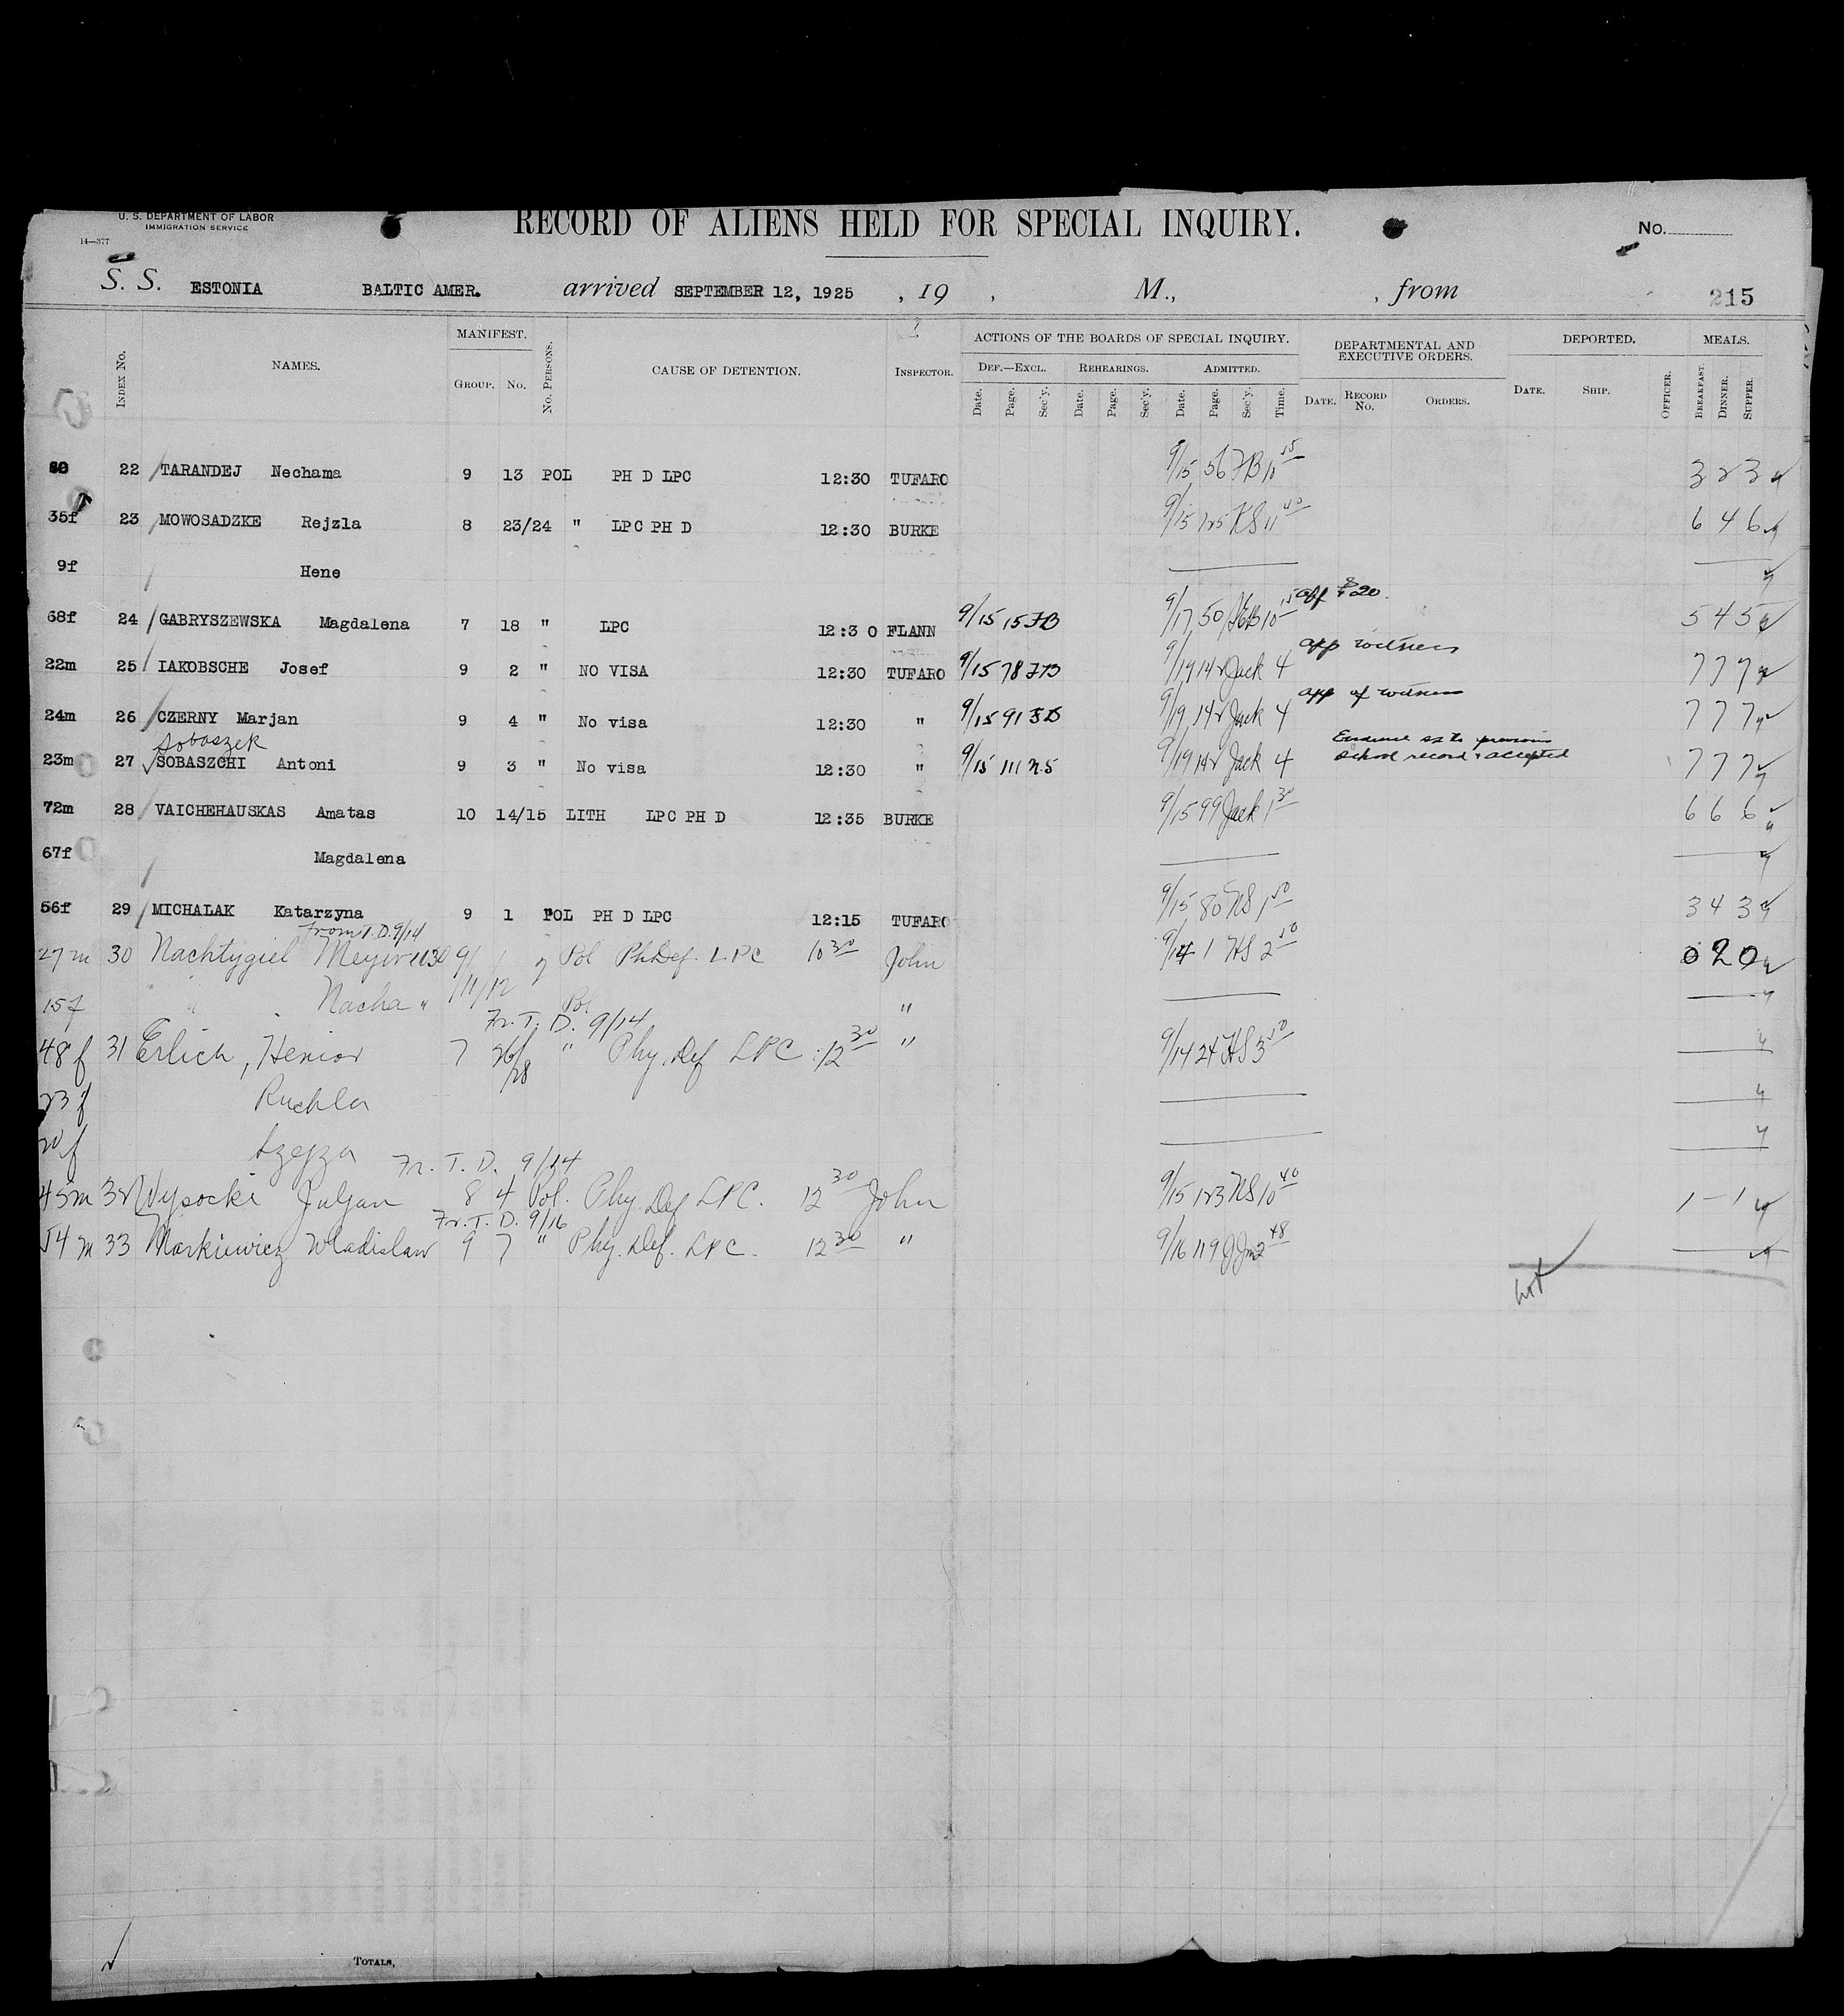 U. S. DEPARTMENT OF LABOR
IMMIGRATION SERVICE
14—377
RECORD OF ALIENS HELD FOR SPECIAL INQUIRY.
No.
S. S. ESTONIA BALTIC AMER. arrived SEPTEMBER 12, 1925 , 19 , M., , from 215
INDEX No. NAMES. MANIFEST. GROUP. No. No. PERSONS. CAUSE OF DETENTION. INSPECTOR. ACTIONS OF THE BOARDS OF SPECIAL INQUIRY. DEF.—EXCL. Date. Page. Sec'y. REHEARINGS. Date. Page. Sec'y. ADMITTED. Date. Page. Sec'y. Time. DEPARTMENTAL AND EXECUTIVE ORDERS. DATE. RECORD No. ORDERS. DEPORTED. DATE. SHIP. OFFICER. MEALS. BREAKFAST. DINNER. SUPPER.
22 TARANDEJ Nechama 9 13 POL PH D LPC 12:30 TUFARO 9/15 56 FB 11 15 3 2 3
35f 23 MOWOSADZKE Rejzla 8 23/24 " LPC PH D 12:30 BURKE 9/15 125 KS 11 40 6 4 6
9f Hene
off $20
68f 24 GABRYSZEWSKA Magdalena 7 18 " LPC 12:3 0 FLANN 9/15 15 FB 9/17 50 10 15 5 4 5
app witness
22m 25 IAKOBSCHE Josef 9 2 " NO VISA 12:30 TUFARO 9/15 78 FB 9/19 142 Jack 4 7 7 7
app of witness
24m 26 CZERNY Marjan 9 4 " No visa 12:30 " 9/15 91 9/19 142 Jack 4 7 7 7
Sobaszek
Evidence as to previous
23m 27 SOBASZCHI Antoni 9 3 " No visa 12:30 " 9/15 111 9/19 142 Jack 4 School record accepted 7 7 7
72m 28 VAICHEHAUSKAS Amatas 10 14/15 LITH LPC PH D 12:35 BURKE 9/15 99 Jack 1 30 6 6 6
67f Magdalena
56f 29 MICHALAK Katarzyna 9 1 POL PH D LPC 12:15 TUFARO 9/15 80 1 50 3 4 3
From T.D. 9/14
27m 30 Nachtygiel Meyer 9/ Pol PhDef. LPC 10 30 John 9/14 1 HS 2 50 0 2 0
15f " Nacha " 11/12 Pol "
Fr. T. D. 9/14
48f 31 Erlich, Henior 7 26/28 " Phy. Def LPC 12 30 " 9/14 24 HS 3 50
23f Ruchla
20f Szejza
Fr. T. D. 9/14
45m 32 Wysocki Juljan 8 4 Pol. Phy. Def LPC. 12 30 John 9/15 123 KS 10 40 1 - 1
Fr. T. D. 9/16
54m 33 Markiewicz Wladislaw 9 7 " Phy. Def. LPC. 12 30 " 9/16 119 2 48
TOTALS,